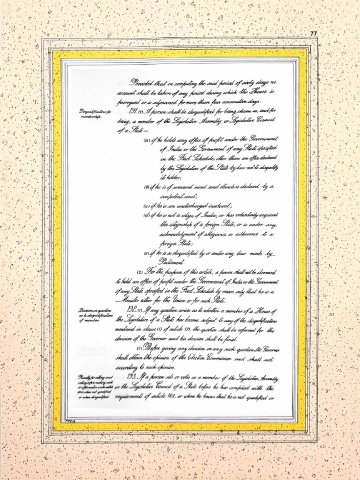 77
Provided that in computing the said period of sixty days no
account shall be taken of any period during which the House is
prorogued or is adjourned for more than four consecutive days.
Disqualifications for
membership.
191. (1) A person shall be disqualified for being chosen as, and for
being, a member of the Legislative Assembly or Legislative Council
of a State—
(a) if he holds any office of profit under the Government
of India or the Government of any State specified
in the First Schedule, other than an office declared
by the Legislature of the State by law not to disqualify
its holder;
(b) if he is of unsound mind and stands so declared by a
competent court;
(c) if he is an undischarged insolvent;
(d) if he is not a citizen of India, or has voluntarily acquired
the citizenship of a foreign State, or is under any
acknowledgment of allegiance or adherence to a
foreign State;
(e) if he is so disqualified by or under any law made by
Parliament.
(2) For the purposes of this article, a person shall not be deemed
to hold an office of profit under the Government of India or the Government
of any State specified in the First Schedule by reason only that he is a
Minister either for the Union or for such State.
Decision on questions
as to disqualifications
of members.
192. (1) If any question arises as to whether a member of a House of
the Legislature of a State has become subject to any of the disqualifications
mentioned in clause (1) of article 191, the question shall be referred for the
decision of the Governor and his decision shall be final.
(2) Before giving any decision on any such question, the Governor
shall obtain the opinion of the Election Commission and shall act
according to such opinion.
Penalty for sitting and
193. If a person sits or votes as a member of the Legislative Assembly
or the Legislative Council of a State before he has complied with the
requirements of article 188, or when he knows that he is not qualified or